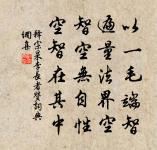 以一毛端智
遍量法界空
智空無自性
空智在其中
釋宗杲李長者贊詞典
網